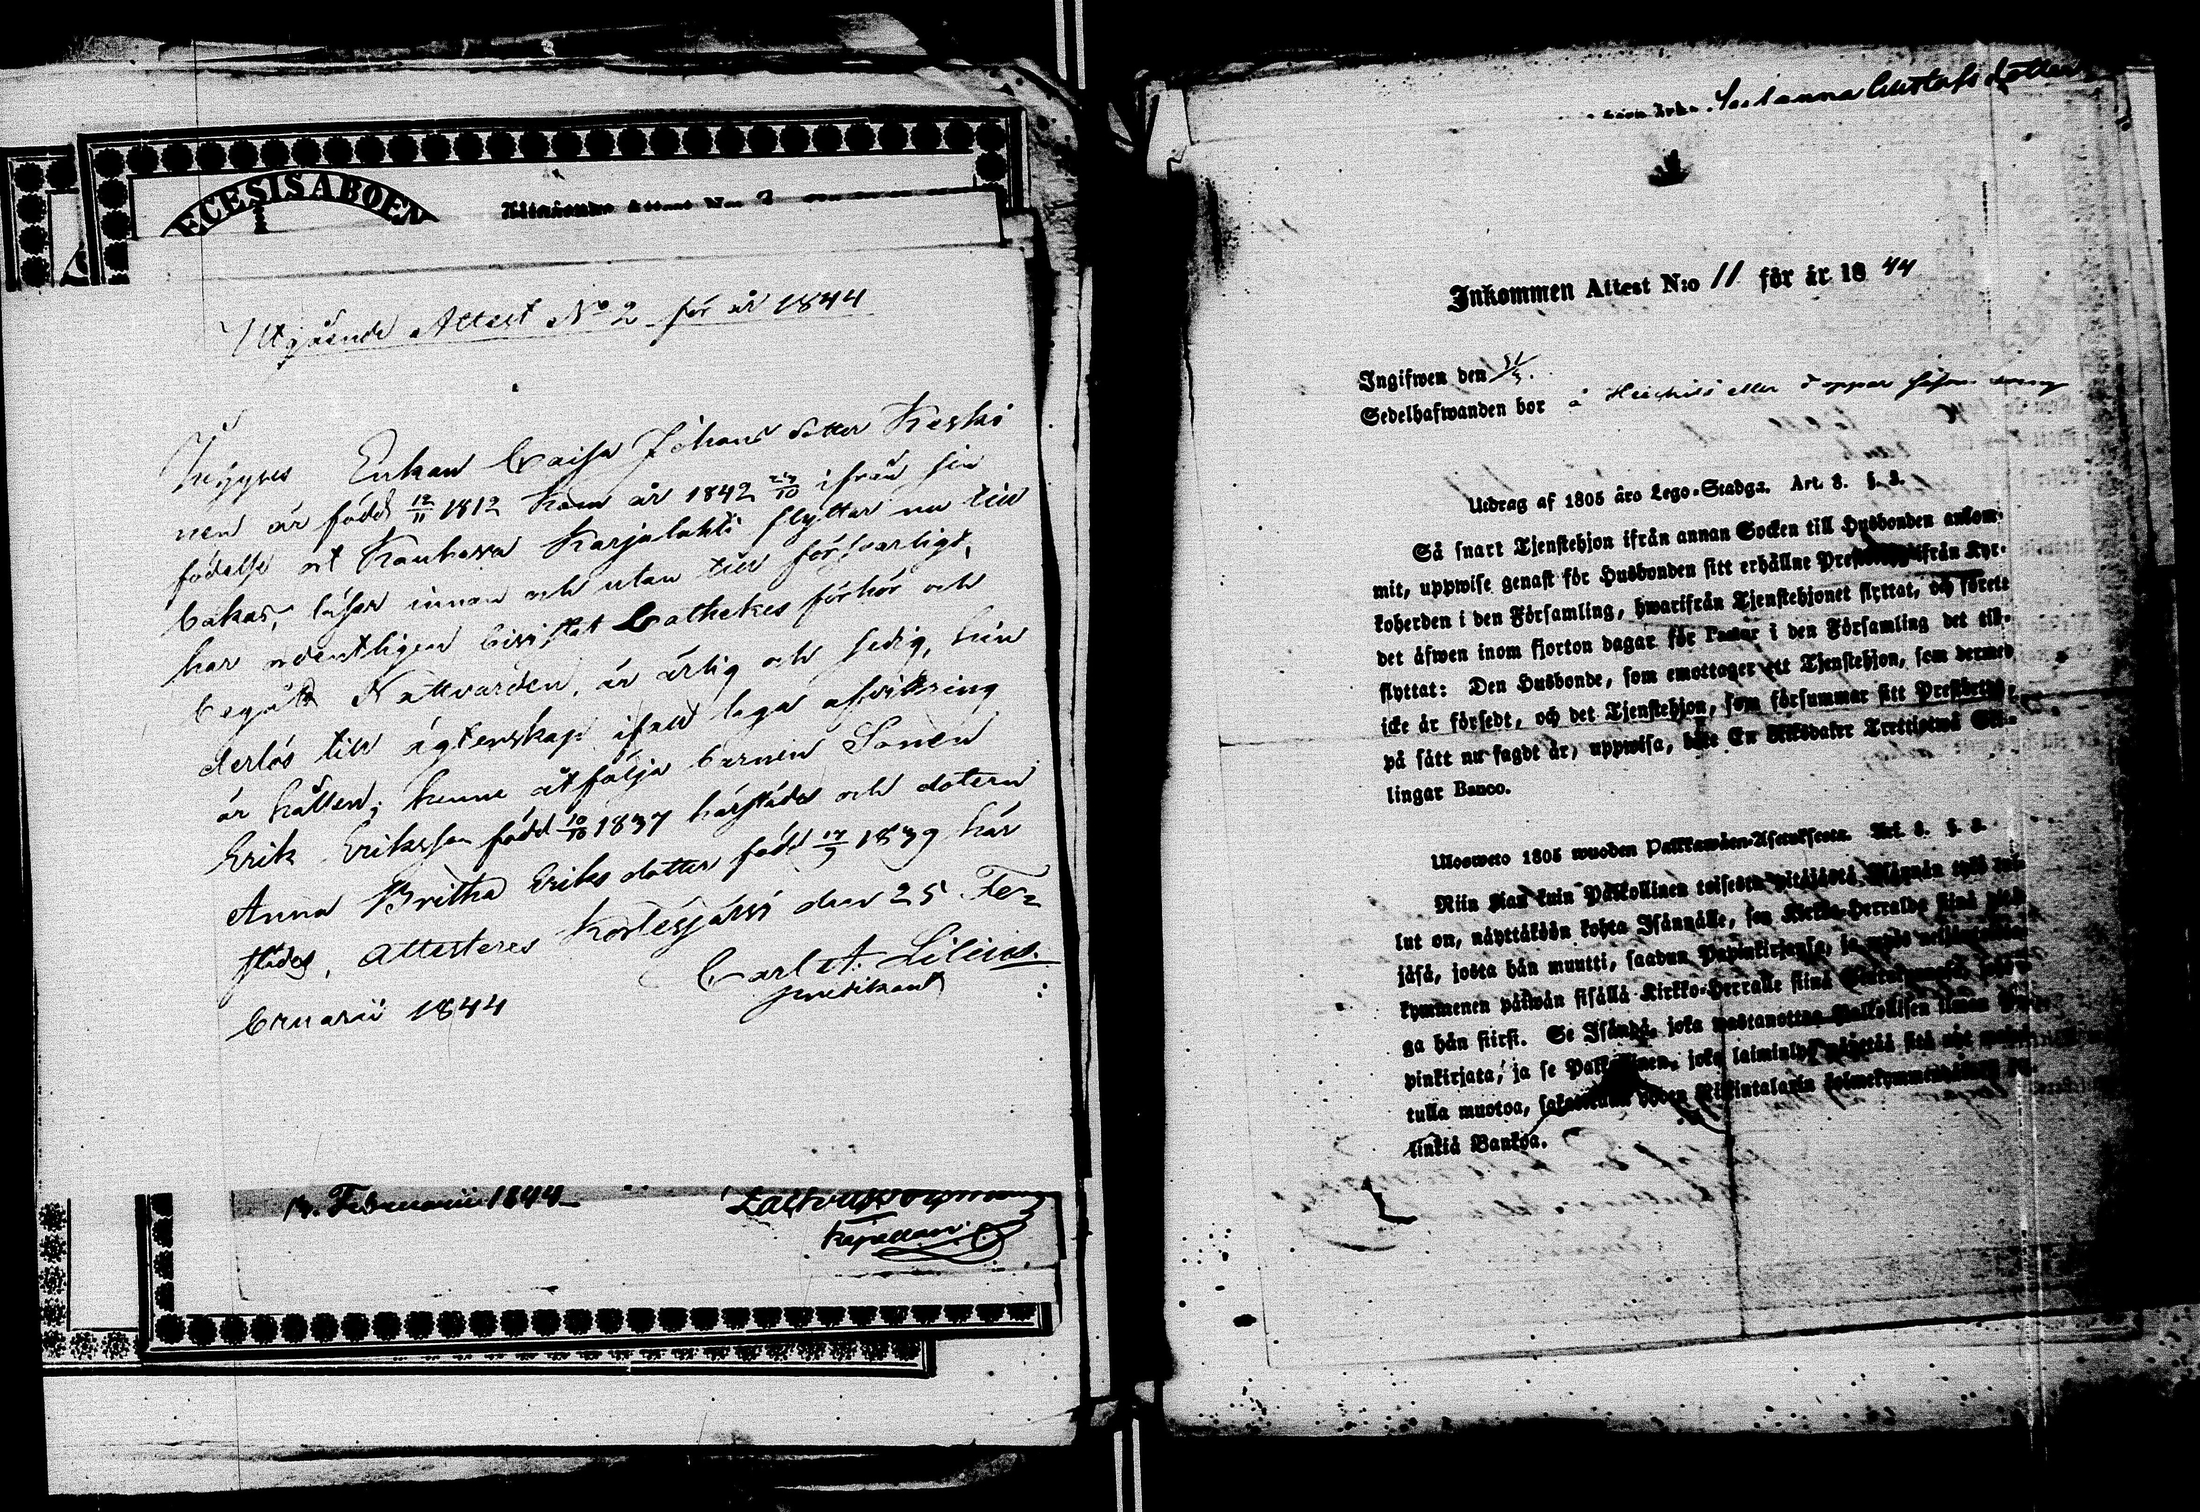 ECESIS ABOEN
Utgående Attest No 2 för år 1844
Enkan Caisa Johans dotter Keski
nen är född 12/11 1812 kom år 1842 ifrån sin
födelse ort Kauhava Karjalahti flyttar nu till
bakas, läser innan och utan till försvarligt,
har ordentligen bivistat Cathekes förhör och
begått Nattvarden, är ärlig och sedig, hin
derlös till ägtenskap ifall laga afvittring
är hållen; henne åtfölja barnen Sonen
Erik Eriksson född 10/10 1837 härstädes och dotern
Anna Britha Eriks dotter född 1839 här
städes, attesteres Kortesjärvi den 25 Fe=
bruarii 1844
Carl A. Lilius.
predikant
Februarii 1844
Kapellan
Susanna Gustafs dotter
Inkommen Attest N:o 11 för år 1844
Ingifwen den
Sedelhafwanden bor å eller
Utdrag af 1805 års Lego-Stadga. Art. 3. §. 3.
Så snart Tjenstehjon ifrån annan Socken till Husbonden ankom-
mit, uppwise genast för Husbonden sitt erhållne ifrån Kyr-
koherden i den Församling, hwarifrån Tjenstehjonet flyttat, och förete
det äfwen inom fjorton dagar för Pastor i den Församling det till-
flyttat: Den Husbonde, som emottager ett Tjenstehjon, som dermed
icke är försedt, och det Tjenstehjon, som försummar sitt
på sätt nu sagdt är, uppwisa, böte En Riksdaler Trettiotwå Skil-
lingar Banco.
Ulosweto 1805 wuoden Palkkawäen-Asetuksesta. Art. 3. §. 3.
Niin pian kuin Palkollinen toisesta pitäjästä Isännän tygö tul-
lut on, näyttäköön kohta Isännälle, sen Kirkko-Herralda siinä
jäsä, josta hän muutti, saadun Papinkirjansa, ja myös
kymmenen päiwän sisällä Kirkko-Herralle siinä Seurakunnassa,
ga hän siirsi. Se Isändä, joka wastanottaa Palkollisen ilman
pinkirjata, ja se Palkollinen, joka laiminlyö näyttää sitä nyt
tulla muotoa, Riksintalarin kolmekymmentä
linkiä Bankoa.